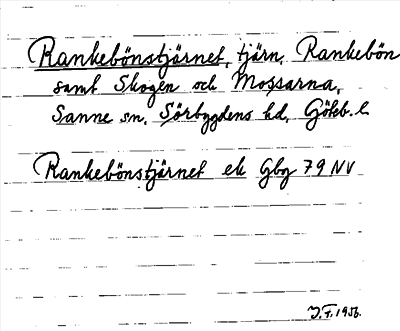 Rankebönstjärnet, tjärn, Rankebön
samt Skogen och Mossarna,
Sanne sn. Sörbygdens hd, Göteb. l.
Rankebönstjärnet ek Gbg 79 NV
J.F. 1956.